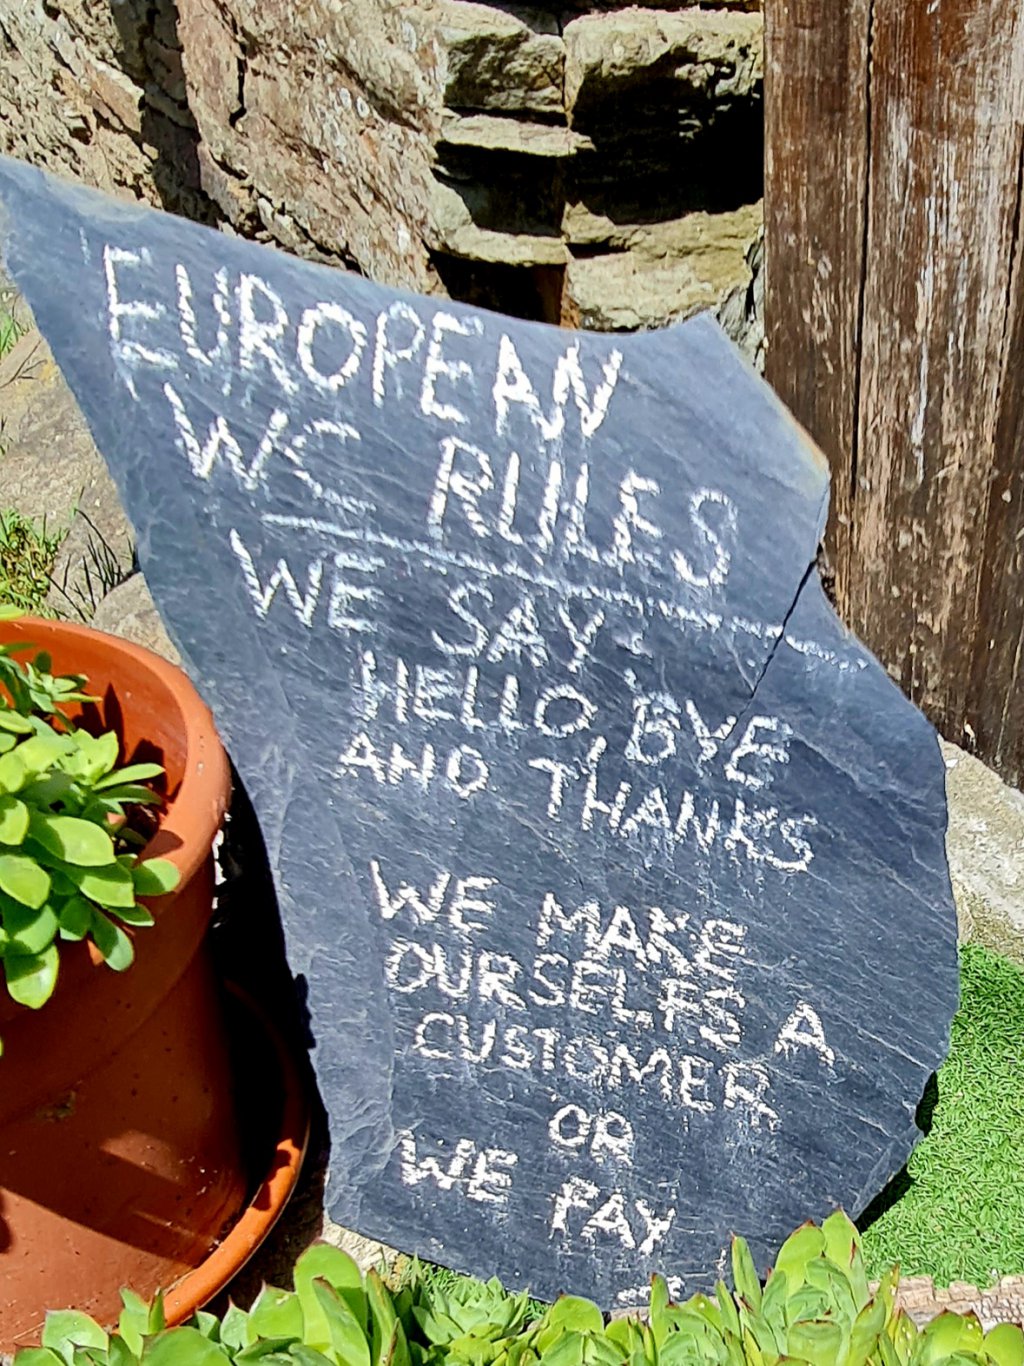 EUROPEAN
WC RULES
WE SAY:
HELLO, BYE
AND THANKS
WE MAKE
OURSELFS A
CUSTOMER
OR
WE PAY